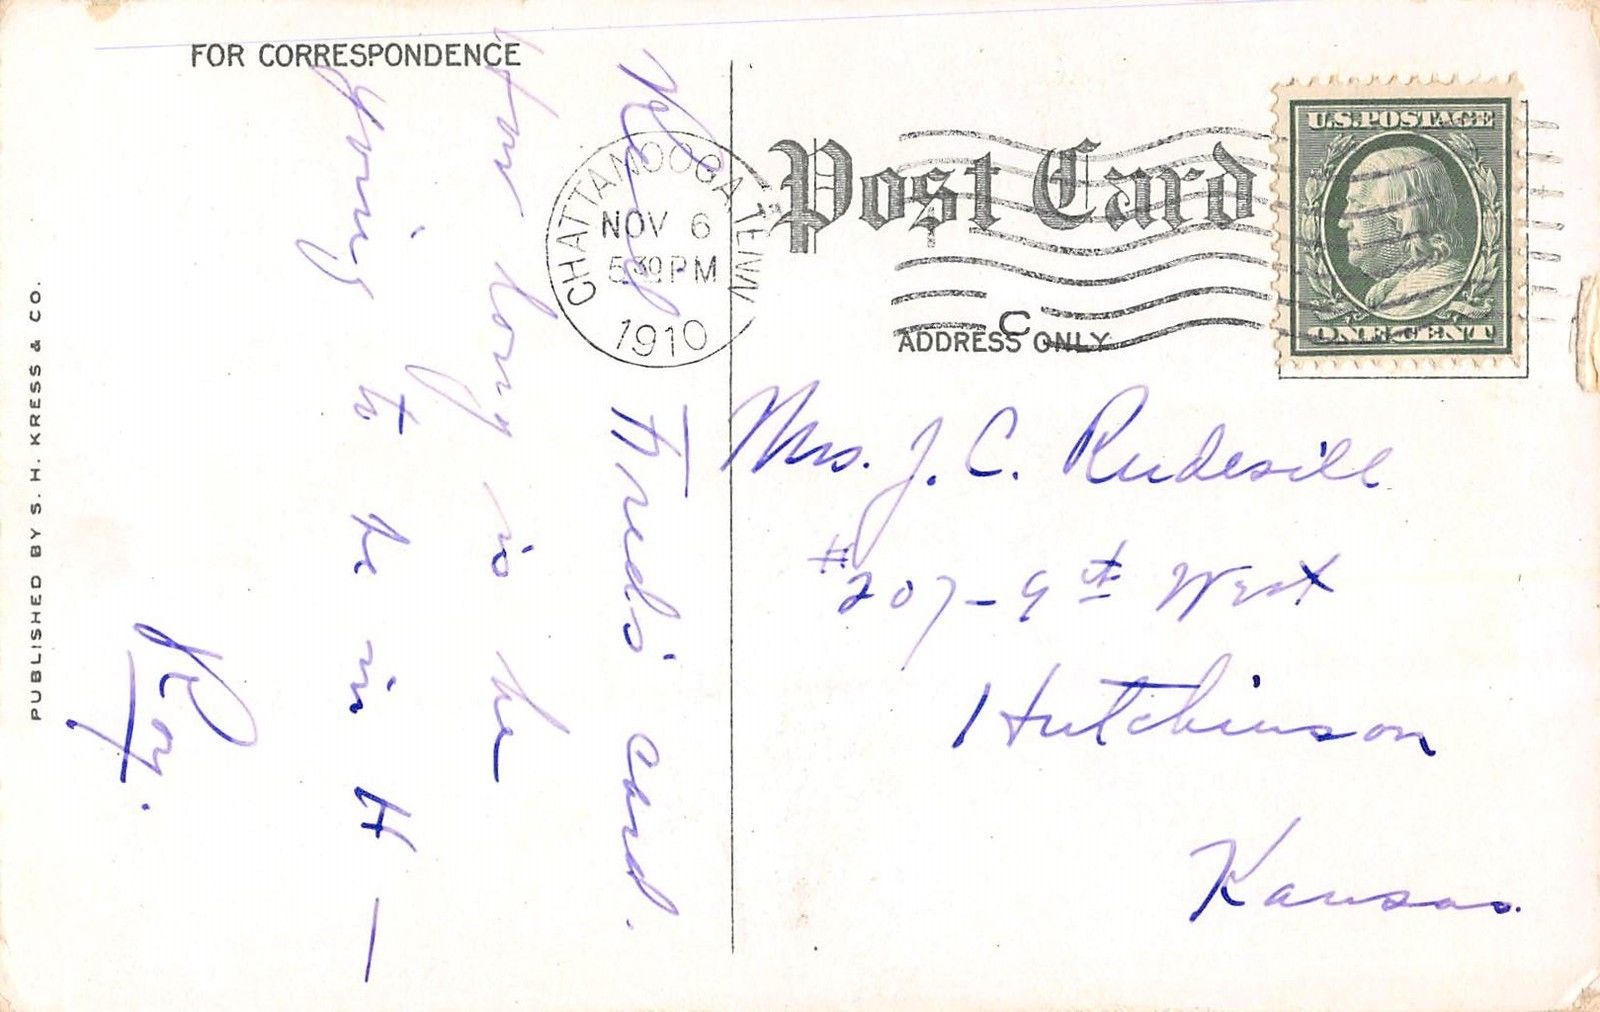 FOR CORRESPONDENCE
Rec'd Fred's card.
How long is he
going to be in H —
Roy.
PUBLISHED BY S. H. KRESS & CO.
CHATTANOOGA TENN
NOV 6
5 30 PM
1910
Post Card
U.S. POSTAGE
ONE CENT
C
ADDRESS ONLY
Mrs. J. C. Rudesill
#207 - 9th West
Hutchinson
Kansas.